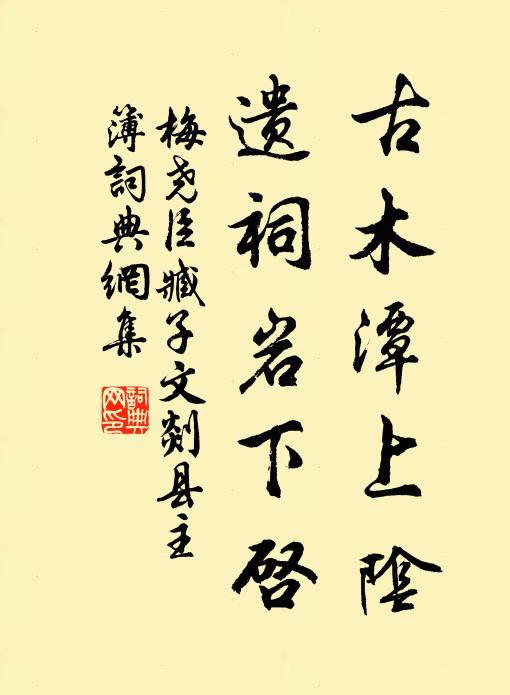 古木潭上陰
遗祠岩下启
梅尧臣臧子文剡县主
簿詞典網集
詞典网印